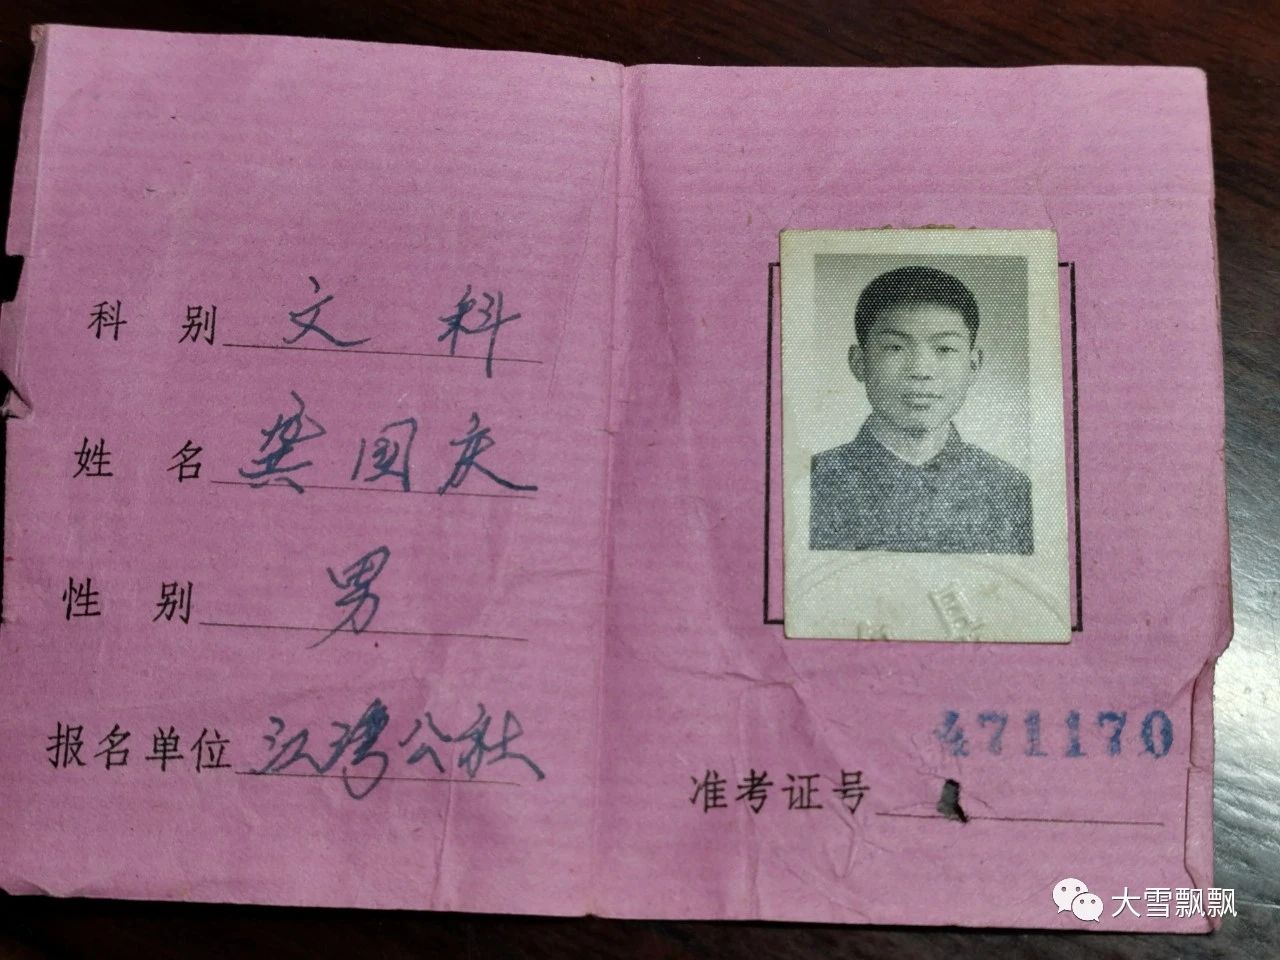 科别 文科
姓名 龚国庆
性别 男
报名单位 江湾公社
471170
准考证号
大雪飘飘